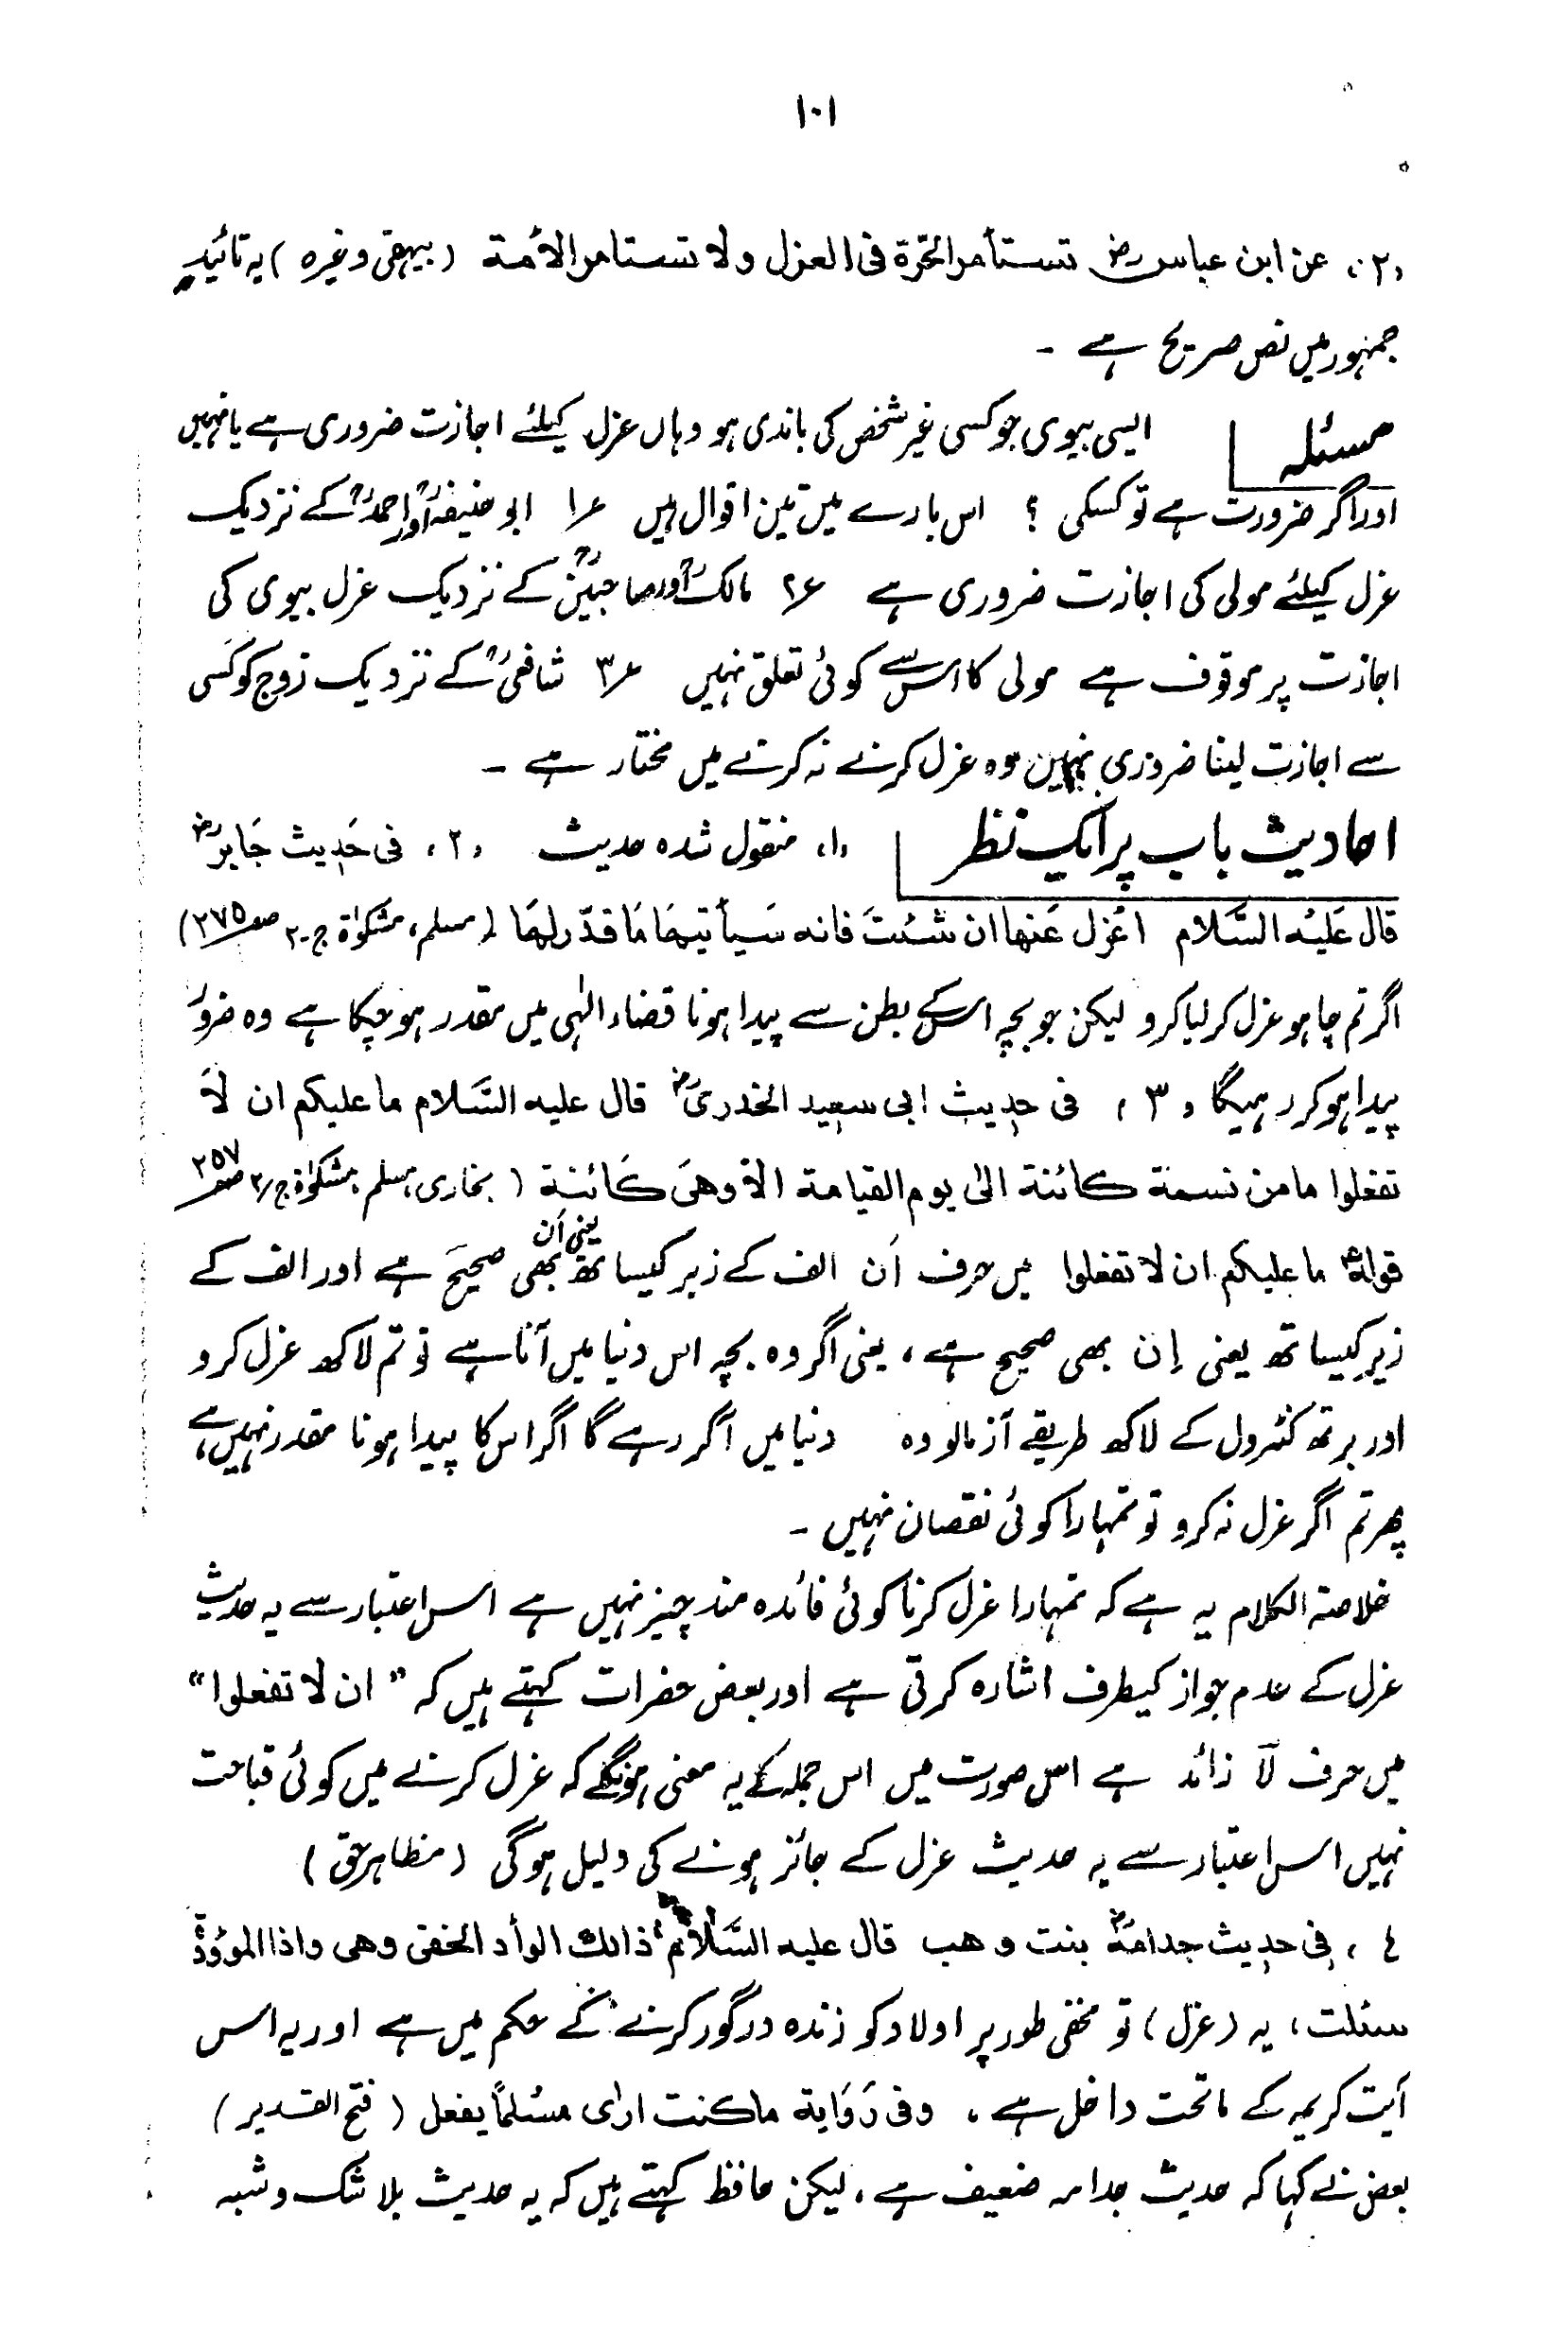 ۱۰۱
(۲) عن ابن عباس رض تستأمر الحرّة فی العزل ولا تستامر الأمة (بیہقی وغیرہ) یہ تائید
جمہور میں نص صریح ہے -
مسئلہ ایسی بیوی جو کسی غیر شخص کی باندی ہو وہاں عزل کیلئے اجازت ضروری ہے یا نہیں
اور اگر ضرورت ہے تو کسکی ؟ اس بارے میں تین اقوال ہیں ؏۱ ابو حنیفہؒ اور احمدؒ کے نزدیک
عزل کیلئے مولی کی اجازت ضروری ہے ؏۲ مالکؒ اور صاحبینؒ کے نزدیک عزل بیوی کی
اجازت پر موقوف ہے مولی کا اس سے کوئی تعلق نہیں ؏۳ شافعیؒ کے نزدیک زوج کو کسی
سے اجازت لینا ضروری نہیں وہ عزل کرنے نہ کرنے میں مختار ہے -
احادیث باب پر ایک نظر (۱) منقول شدہ حدیث (۲) فی حَدِیث جَابر رض
قال عَلَیْہ السَّلام اعْزل عَنھا ان شئتَ فانہ سَیأ تیھَا مَا قدّر لھَا (مسلم، مشکوٰۃ ج-۲ صـ۲۷۵)
اگر تم چاہو عزل کر لیا کرو لیکن جو بچہ اس کے بطن سے پیدا ہونا قضاء الٰہی میں مقدر ہو چکا ہے وہ ضرور
پیدا ہو کر رہیگا (۳) فی حدیث ابی سعید الخدری رض قال علیہ السَّلام ما علیکم ان لَا
تفعلوا ما من نسمة کائنة الیٰ یوم القیامة الّا وھیَ کَائنة (بخاری، مسلم، مشکوٰۃ ج/۲ صـ۲۵۷
قولہٗ ما علیکم ان لا تفعلوا میں حرف اَن الف کے زبر کیساتھ یعنی اَن بھی صحیح ہے اور الف کے
زیر کیساتھ یعنی إن بھی صحیح ہے، یعنی اگر وہ بچہ اس دنیا میں آنا ہے تو تم لاکھ عزل کرو
اور برتھ کنٹرول کے لاکھ طریقے آزمالو وہ دنیا میں آکر رہے گا اگر اس کا پیدا ہونا مقدر نہیں ہے
پھر تم اگر عزل نہ کرو تو تمہارا کوئی نقصان نہیں -
خلاصۃ الکلام یہ ہے کہ تمہارا عزل کرنا کوئی فائدہ مند چیز نہیں ہے اس اعتبار سے یہ حدیث
عزل کے عدم جواز کیطرف اشارہ کرتی ہے اور بعض حضرات کہتے ہیں کہ " ان لا تفعلوا "
میں حرف لآ زائد ہے اس صورت میں اس جملہ کے یہ معنی ہونگے کہ عزل کرنے میں کوئی قباحت
نہیں اس اعتبار سے یہ حدیث عزل کے جائز ہونے کی دلیل ہوگی (مظاہر حق)
٤، فی حدیث جدامة رض بنت وھب قال علیہ السَّلام ذالك الوأد الخفی وھی واذا الموؤدة
سئلت، یہ (عزل) تو مخفی طور پر اولاد کو زندہ درگور کرنے کے حکم میں ہے اور یہ اس
آیت کریمہ کے ماتحت داخل ہے، وفی رَوَایة ما کنت ارٰی مسْلماً یفعل (فتح القدیر)
بعض نے کہا کہ حدیث جدامہ ضعیف ہے، لیکن حافظ کہتے ہیں کہ یہ حدیث بلا شک و شبہ